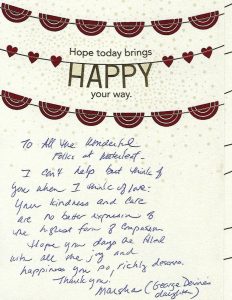 Hope today brings
HAPPY
your way.
To All the Wonderful
Folks at
I can't help but think of
you when I think of love.
Your kindness and care
are no better expression of
the highest form of compassion
Hope your days be filled
with all the joy and
happiness you so richly deserve.
Thank you.
Marsha (George
daughter)